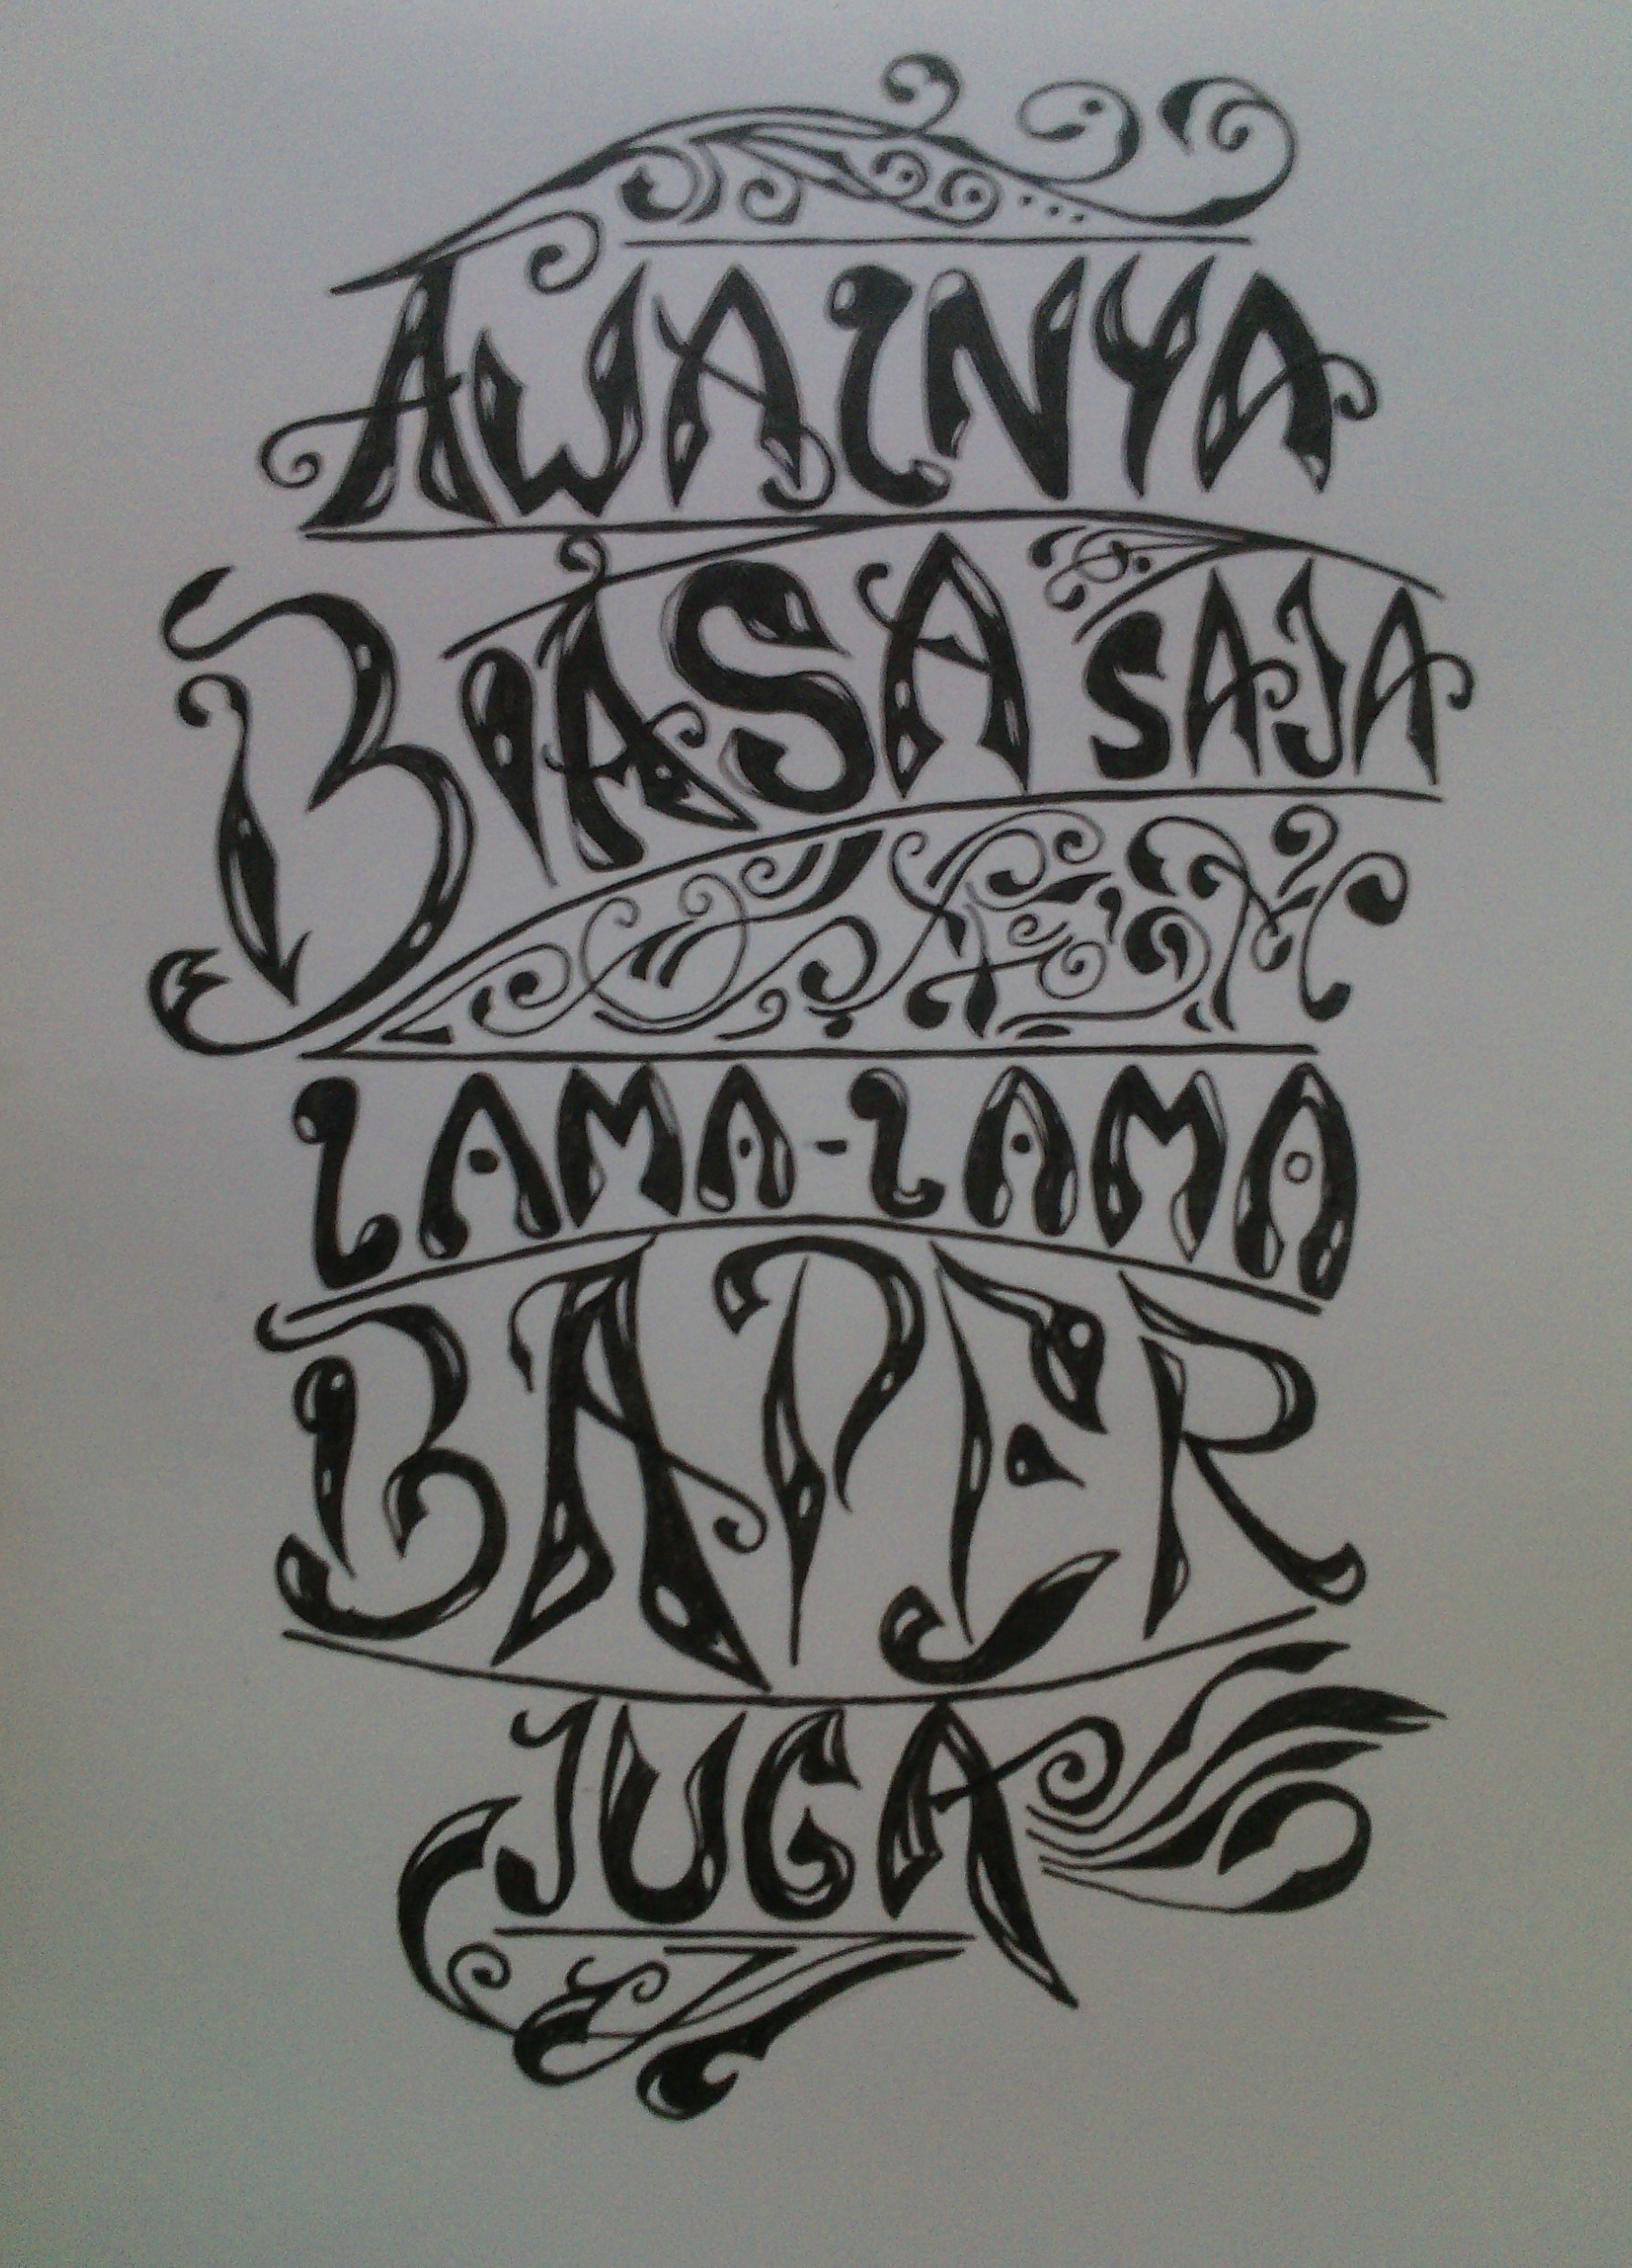 AWALNYA
BIASA SAJA
LAMA-LAMA
BAPER
JUGA